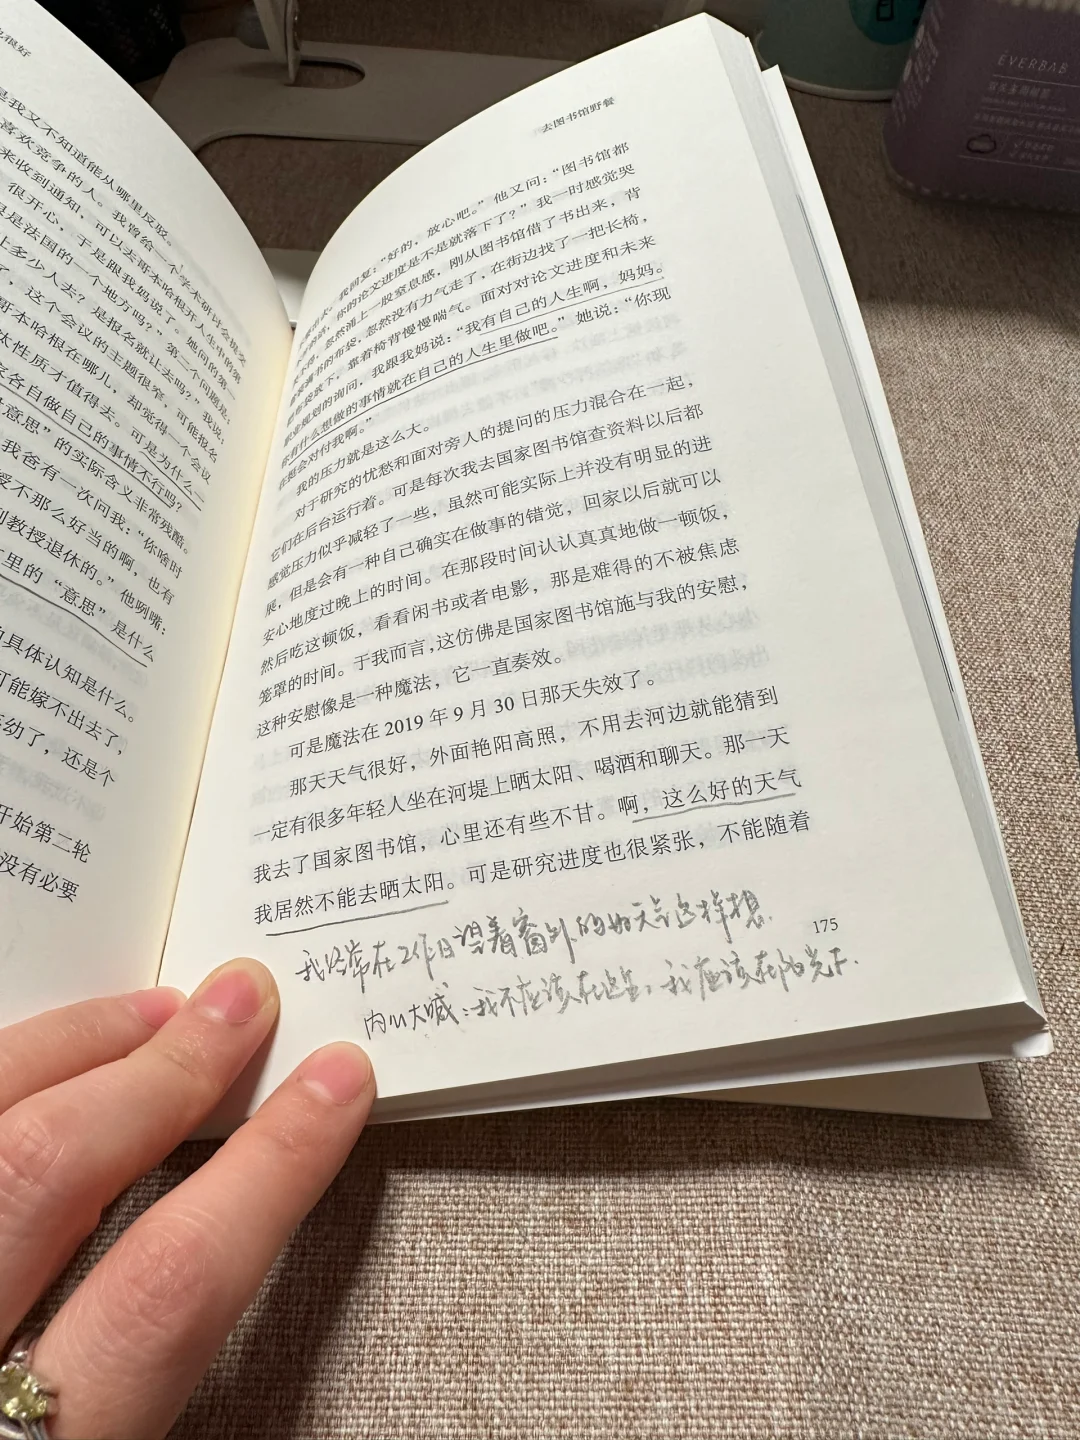 也很好
是我又不知道能从哪里反驳。
喜欢竞争的人。我曾给一个学术研讨会投
来收到通知，可以去哥本哈根开人生中的第
很开心，于是跟我妈说了。她问的第一
是法国的一个地方吗？”第二个问题是：
上多少人去？是报名就让去吗？”我说：
了，这个会议的主题很窄，可能报名
哥本哈根在哪儿，却觉得一个会议
太性质才值得去。可是为什么一
家各自做自己的事情不行吗？
意思”的实际含义非常残酷。
我爸有一次问我：“你啥时
授不那么好当的啊，也有
到教授退休的。”他咧嘴：
里的“意思”是什么
具体认知是什么。
可能嫁不出去了，
幼了，还是个
开始第二轮
没有必要
去图书馆野餐
我回复：“好的，放心吧。”他又问：“图书馆都
的话，你的论文进度是不是就落下了？”我一时感觉哭
不得，忽然涌上一股窒息感，刚从图书馆借了书出来，背
着装满书的布袋，忽然没有力气走了，在街边找了一把长椅，
把布袋放下，靠着椅背慢慢喘气。面对对论文进度和未来
职业规划的询问，我跟我妈说：“我有自己的人生啊，妈妈。
你有什么想做的事情就在自己的人生里做吧。”她说：“你现
在挺会对付我啊。”
我的压力就是这么大。
对于研究的忧愁和面对旁人的提问的压力混合在一起，
它们在后台运行着。可是每次我去国家图书馆查资料以后都
感觉压力似乎减轻了一些，虽然可能实际上并没有明显的进
展，但是会有一种自己确实在做事的错觉，回家以后就可以
安心地度过晚上的时间。在那段时间认认真真地做一顿饭，
然后吃这顿饭，看看闲书或者电影，那是难得的不被焦虑
笼罩的时间。于我而言，这仿佛是国家图书馆施与我的安慰，
这种安慰像是一种魔法，它一直奏效。
可是魔法在 2019 年 9 月 30 日那天失效了。
那天天气很好，外面艳阳高照，不用去河边就能猜到
一定有很多年轻人坐在河堤上晒太阳、喝酒和聊天。那一天
我去了国家图书馆，心里还有些不甘。啊，这么好的天气
我居然不能去晒太阳。可是研究进度也很紧张，不能随着
我经常在工作日望着窗外的好天气这样想.
175
内心大喊：我不应该在这里，我应该在阳光下.
EVERBAB